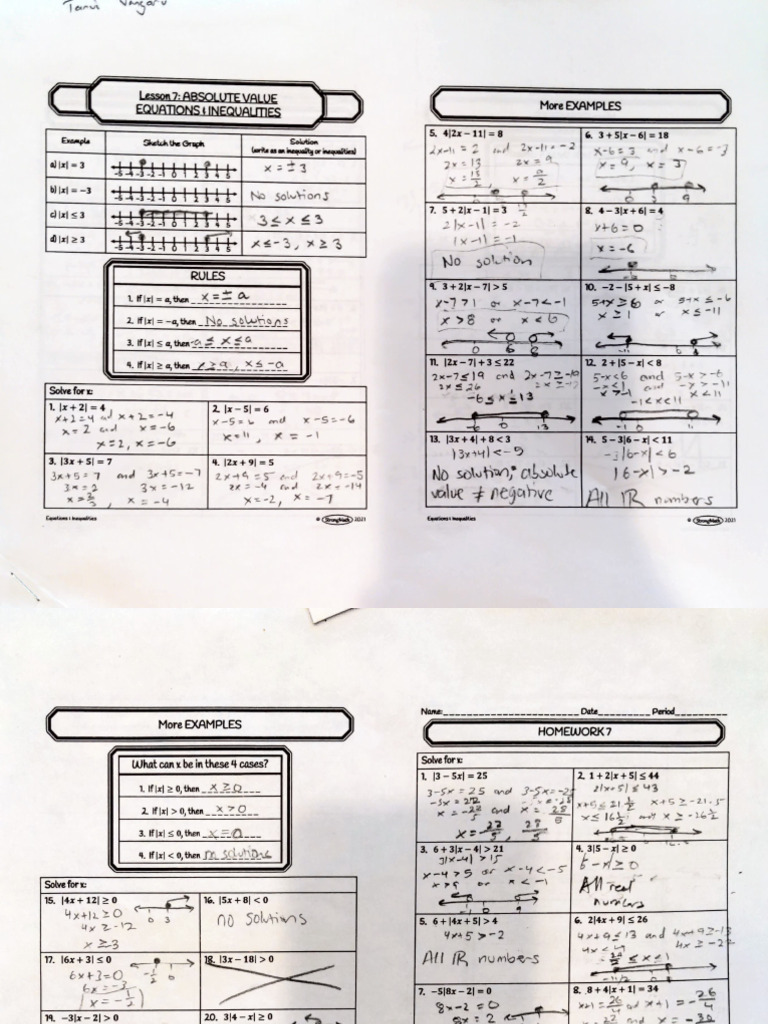 Lesson 7: ABSOLUTE VALUE
EQUATIONS & INEQUALITIES
Example
Sketch the Graph
Solution
(write as an inequality or inequalities)
a) |x| = 3
-5 -4 -3 -2 -1 0 1 2 3 4 5
x = ± 3
b) |x| = −3
-5 -4 -3 -2 -1 0 1 2 3 4 5
No solutions
c) |x| ≤ 3
-5 -4 -3 -2 -1 0 1 2 3 4 5
3 ≤ x ≤ 3
d) |x| ≥ 3
-5 -4 -3 -2 -1 0 1 2 3 4 5
x ≤ -3, x ≥ 3
RULES
1. If |x| = a, then x = ± a
2. If |x| = −a, then No solutions
3. If |x| ≤ a, then -a ≤ x ≤ a
4. If |x| ≥ a, then x ≥ a, x ≤ -a
Solve for x:
1. |x + 2| = 4
x+2=4 and x+2=-4
x=2 and x=-6
x=2, x=-6
2. |x − 5| = 6
x-5=6 and x-5=-6
x=11, x = -1
3. |3x + 5| = 7
3x+5=7 and 3x+5=-7
3x=2 3x=-12
x=2/3, x=-4
4. |2x + 9| = 5
2x+9=5 and 2x+9=-5
2x=-4 and 2x=-14
x=-2, x=-7
Equations & Inequalities
© StrongMath 2021
More EXAMPLES
5. 4|2x − 11| = 8
2x-11=2 and 2x-11=-2
2x=13 2x=9
x=13/2, x=9/2
6. 3 + 5|x − 6| = 18
x-6=3 and x-6=-3
x=9, x=3
0 3 9
7. 5 + 2|x − 1| = 3
2|x-1|=-2
|x-1|=-1
No solution
8. 4 − 3|x + 6| = 4
x+6=0
x=-6
9. 3 + 2|x − 7| > 5
x-7>1 or x-7<-1
x>8 or x<6
0 6 8
10. −2 − |5 + x| ≤ −8
5+x≥6 or 5+x≤-6
x≥1 or x≤-11
11. |2x − 7| + 3 ≤ 22
2x-7≤19 and 2x-7≥-19
2x≤26
-6≤x≤13
-6 0 13
12. 2 + |5 − x| < 8
5-x<6 and 5-x>-6
-x<1 and -x>-11
x>-1 x<11
-1<x<11
-1 0 11
13. |3x + 4| + 8 < 3
|3x+4|<-5
No solution; absolute
value ≠ negative
14. 5 − 3|6 − x| < 11
-3|6-x|<6
|6-x|>-2
All IR numbers
Equations & Inequalities
© StrongMath 2021
More EXAMPLES
What can x be in these 4 cases?
1. If |x| ≥ 0, then x ≥ 0
2. If |x| > 0, then x > 0
3. If |x| ≤ 0, then x=0
4. If |x| < 0, then no solutions
Solve for x:
15. |4x + 12| ≥ 0
4x+12≥0
4x≥-12
x≥-3
0 3
16. |5x + 8| < 0
no solutions
17. |6x + 3| ≤ 0
6x+3=0
6x=-3
x=-1/2
-1/2 0
18. |3x − 18| > 0
19. −3|x − 2| > 0
20. 3|4 − x| ≥ 0
Name: Date Period
HOMEWORK 7
Solve for x:
1. |3 − 5x| = 25
3-5x=25 and 3-5x=-25
x=-22/5 and x=28/5
2. 1 + 2|x + 5| ≤ 44
2|x+5|≤43
x+5≤21½ x+5≥-21.5
x≤16½ x≥-26½
3. 6 + 3|x − 4| > 21
3|x-4|>15
x-4>5 or x-4<-5
x>9 or x<-1
-1 0 9
4. 3|5 − x| ≥ 0
5-x≥0
All real
numbers
5. 6 + |4x + 5| > 4
4x+5>-2
All IR numbers
6. 2|4x + 9| ≤ 26
4x+9≤13 and 4x+9≥-13
7. −5|8x − 2| = 0
8x-2=0
8x=2
8. 8 + 4|x + 1| = 34
x+1=26/4 x+1=-26/4